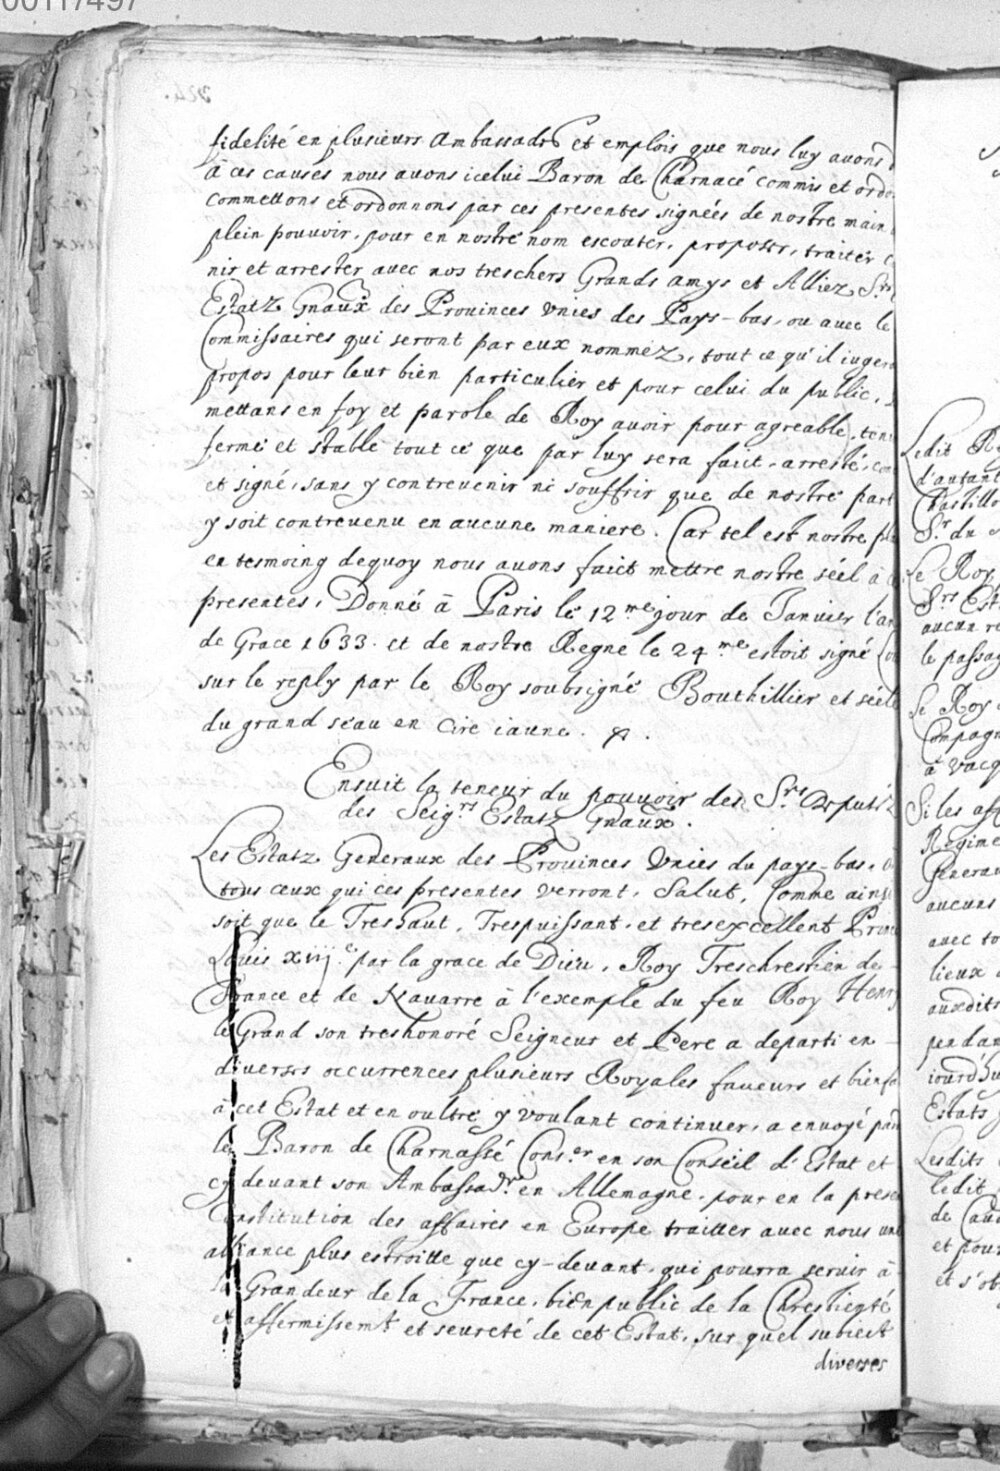 00117497
fidelité en plusieurs Ambassades et emplois que nous luy auons
à ces causes nous auons icelui Baron de Charnacé commis et ordo
commettons et ordonnons par ces presentes signées de nostre main
plein pouuoir, pour en nostre nom escouter, proposer, traiter
nir et arrester auec nos treschers Grands amys et Alliez Srs
Estatz Gnaux des Prouinces Vnies des Pays-bas, ou auec le
Commissaires qui seront par eux nommez, tout ce qu'il iuger
propos pour leur bien particulier et pour celui du public,
mettans en foy et parole de Roy auoir pour agreable, ten
ferme et stable tout ce que par luy sera faict, arresté, co
et signé, sans y contreuenir ni souffrir que de nostre part
y soit contreuenu en aucune maniere. Car tel est nostre pl
en tesmoing dequoy nous auons faict mettre nostre séel à
presentes, Donné à Paris le 12me jour de Januier l'an
de Grace 1633. et de nostre Regne le 24me estoit signé Lo
sur le reply par le Roy soubsigné Bouthillier et séel
du grand seau en cire iaune.
Ensuit la teneur du pouuoir des Srs Deputéz
des Seigrs Estatz Gnaux.
Les Estatz Generaux des Prouinces Vnies du pays-bas,
tous ceux qui ces presentes verront, Salut, Comme ainsi
soit que le Treshaut, Trespuissant, et tresexcellent Prin
Louis xiije par la grace de Dieu, Roy Treschrestien de
France et de Nauarre à l'exemple du feu Roy Henry
le Grand son treshonoré Seigneur et Pere a departi en
diverses occurrences plusieurs Royales faueurs et bienfa
à cet Estat et en oultre y voulant continuer, a enuoyé par
le Baron de Charnassé Conser en son Conseil d'Estat et
cy deuant son Ambassadr en Allemagne, pour en la prese
Constitution des affaires en Europe traitter auec nous une
alliance plus estroitte que cy-deuant, qui pourra seruir à
la Grandeur de la France, bien public de la Chrestienté
et affermissemt et seureté de cet Estat, sur quel subiect
diverses
Ledit Ro
d'autant
Chastillo
Sr. du
Le Roy
Srs Est
aucun re
le passag
Le Roy
Compagn
à vacq
Si les aff
Regime
Generau
aucuns
auec to
lieux
auxdits
pendan
iourd'hu
Estats
Lesdits
ledit
de Cau
et pour
et s'ob